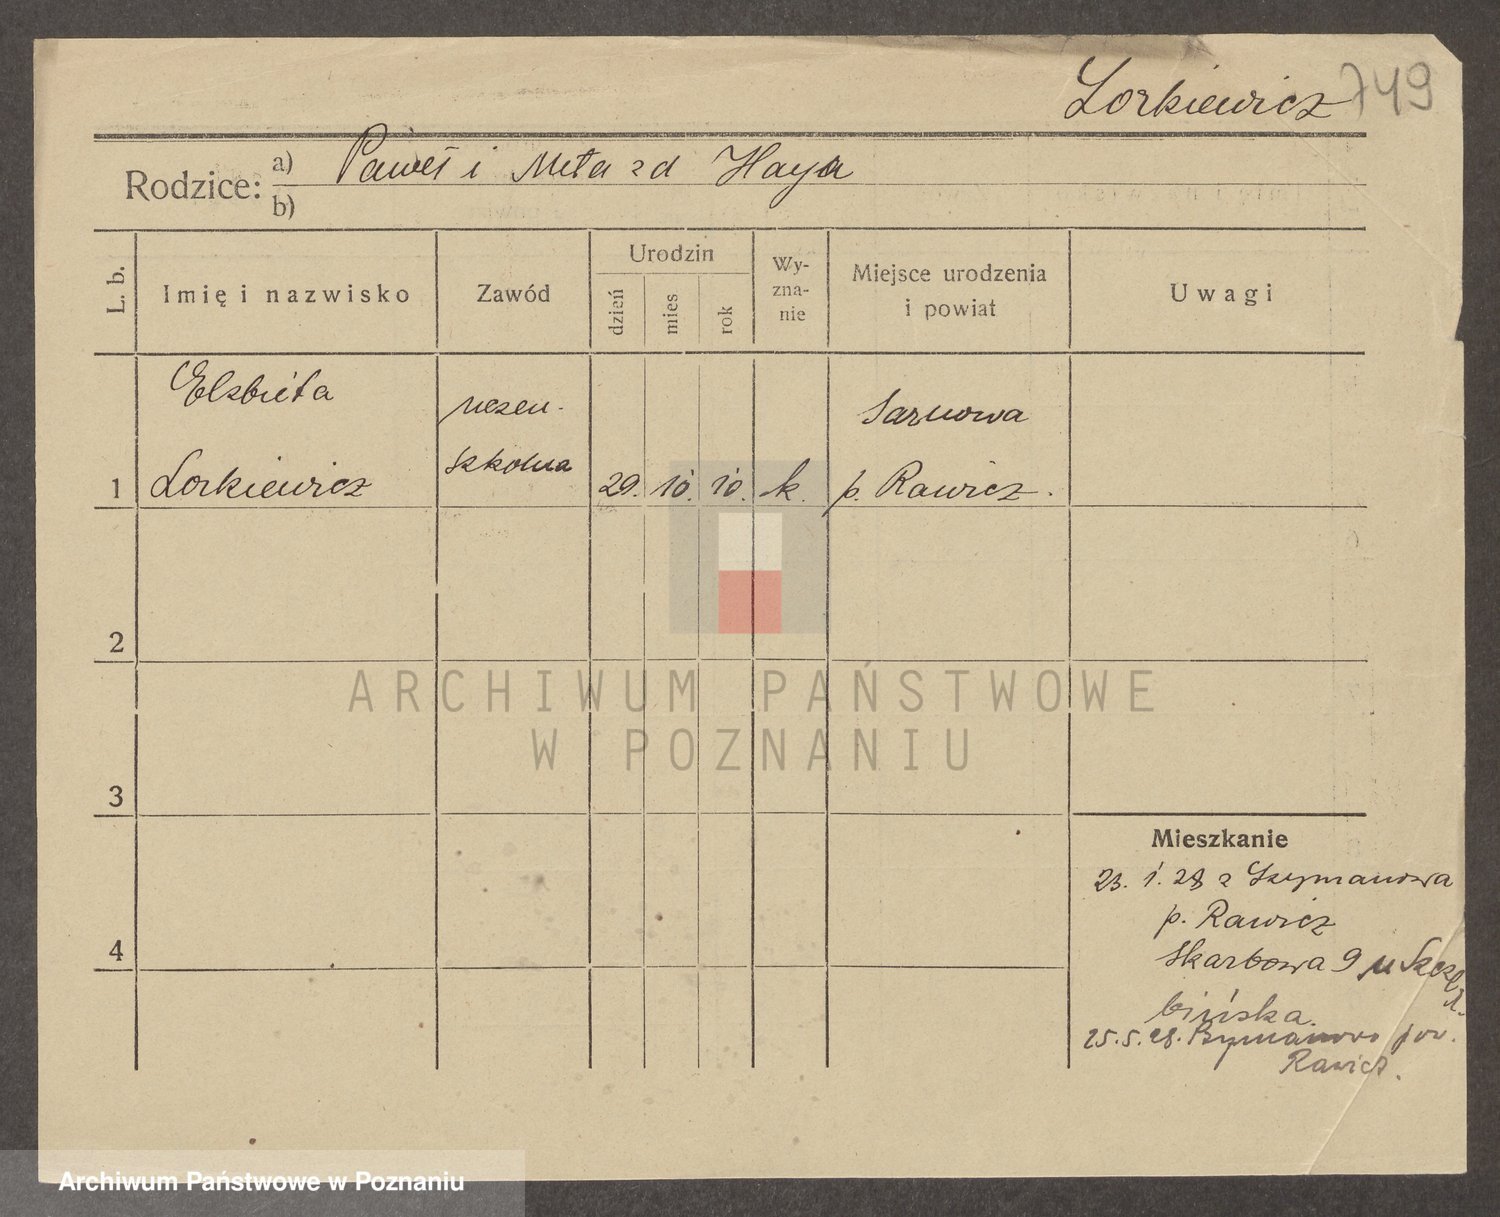 Lorkiewicz 749
Rodzice: a) Paweł i Meta zd Haya
b)
L. b. Imię i nazwisko Zawód Urodzin dzień mies rok Wy-zna-nie Miejsce urodzenia i powiat Uwagi
Elzbieta uczen. Sarnowa
1 Lorkiewicz szkolna 29. 10. 10. k. p. Rawicz.
2
ARCHIWUM PAŃSTWOWE
W POZNANIU
3
Mieszkanie
23. 1. 28 z Szymanowa
p. Rawicz
4
Skarbowa 9 u
bińska.
25.5.28. Szymanowo pow.
Rawicz.
Archiwum Państwowe w Poznaniu